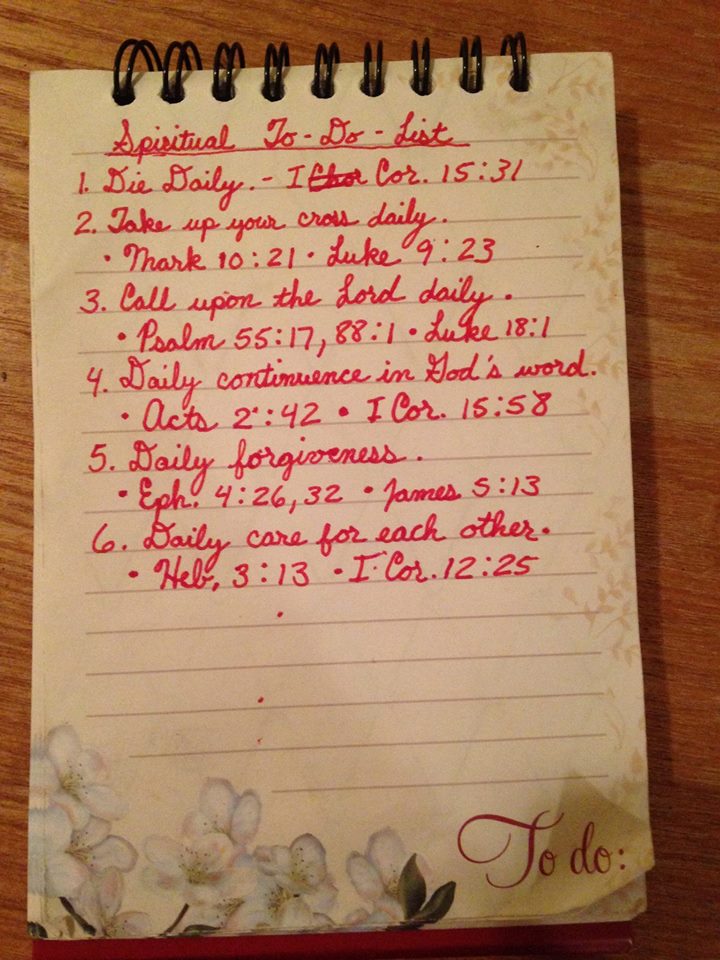 Spiritual To-Do-List
1. Die Daily. - I Cor. 15:31
2. Take up your cross daily.
• Mark 10:21 • Luke 9:23
3. Call upon the Lord daily.
• Psalm 55:17, 88:1 • Luke 18:1
4. Daily continuence in God's word.
• Acts 2:42 • I Cor. 15:58
5. Daily forgiveness.
• Eph. 4:26, 32 • James 5:13
6. Daily care for each other.
• Heb, 3:13 • I Cor. 12:25
To do: